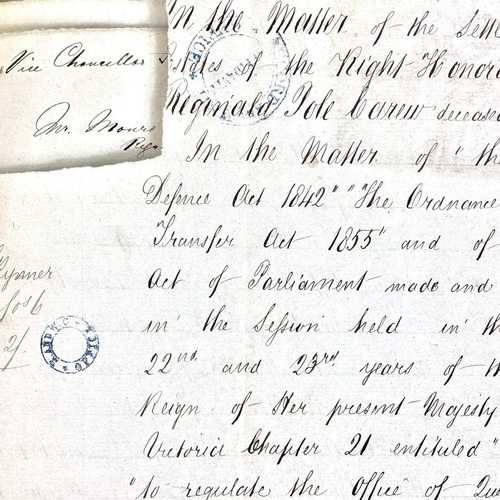 Vice Chancellor S
Mr. Mours
Regr
In the Matter of the Settl
Estates of the Right Honora
Reginald Pole Carew deceased
In the Matter of "the
Defence Act 1842" "The Ordnance
Transfer Act 1855" and of
Act of Parliament made and
in the Session held in th
22nd and 23rd years of th
Reign of Her present Majesty
Victoria Chapter 21 entituled "
"to regulate the Office of Que
fos 6
2/
R AND W C OFFICE